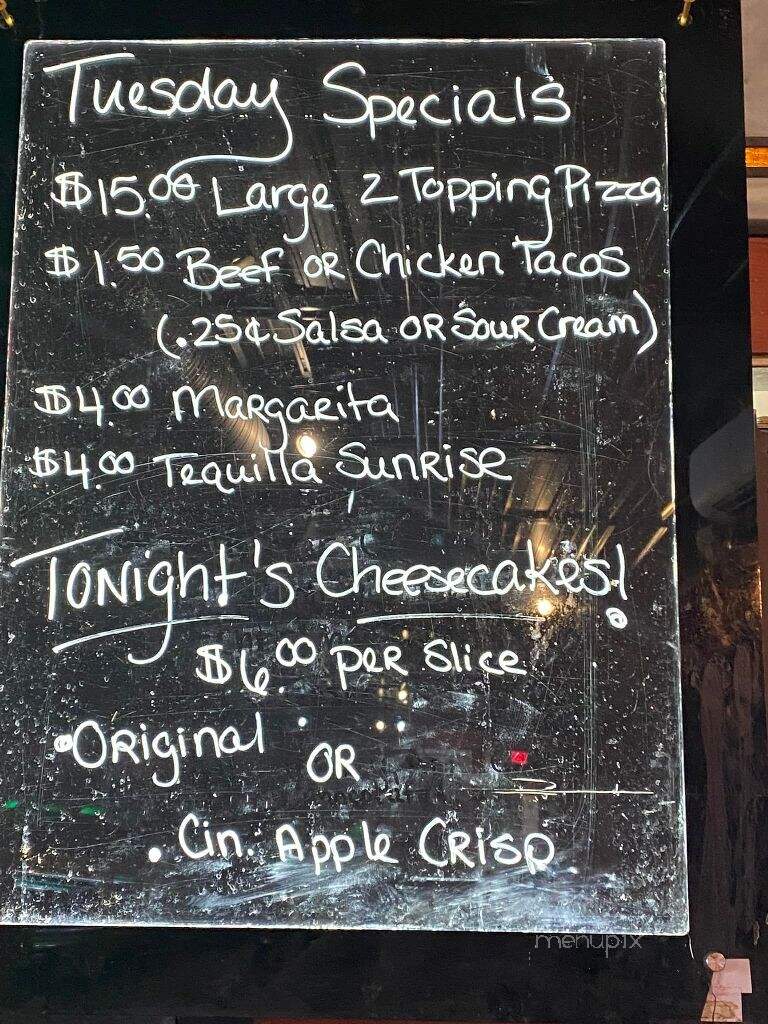 Tuesday Specials
$15.00 Large 2 Topping Pizza
$1.50 Beef OR Chicken Tacos
(.25¢ Salsa OR Sour Cream)
$4.00 Margarita
$4.00 Tequilla Sunrise
Tonight's Cheesecakes!
$6.00 per slice
• Original
OR
• Cin. Apple Crisp
menupix